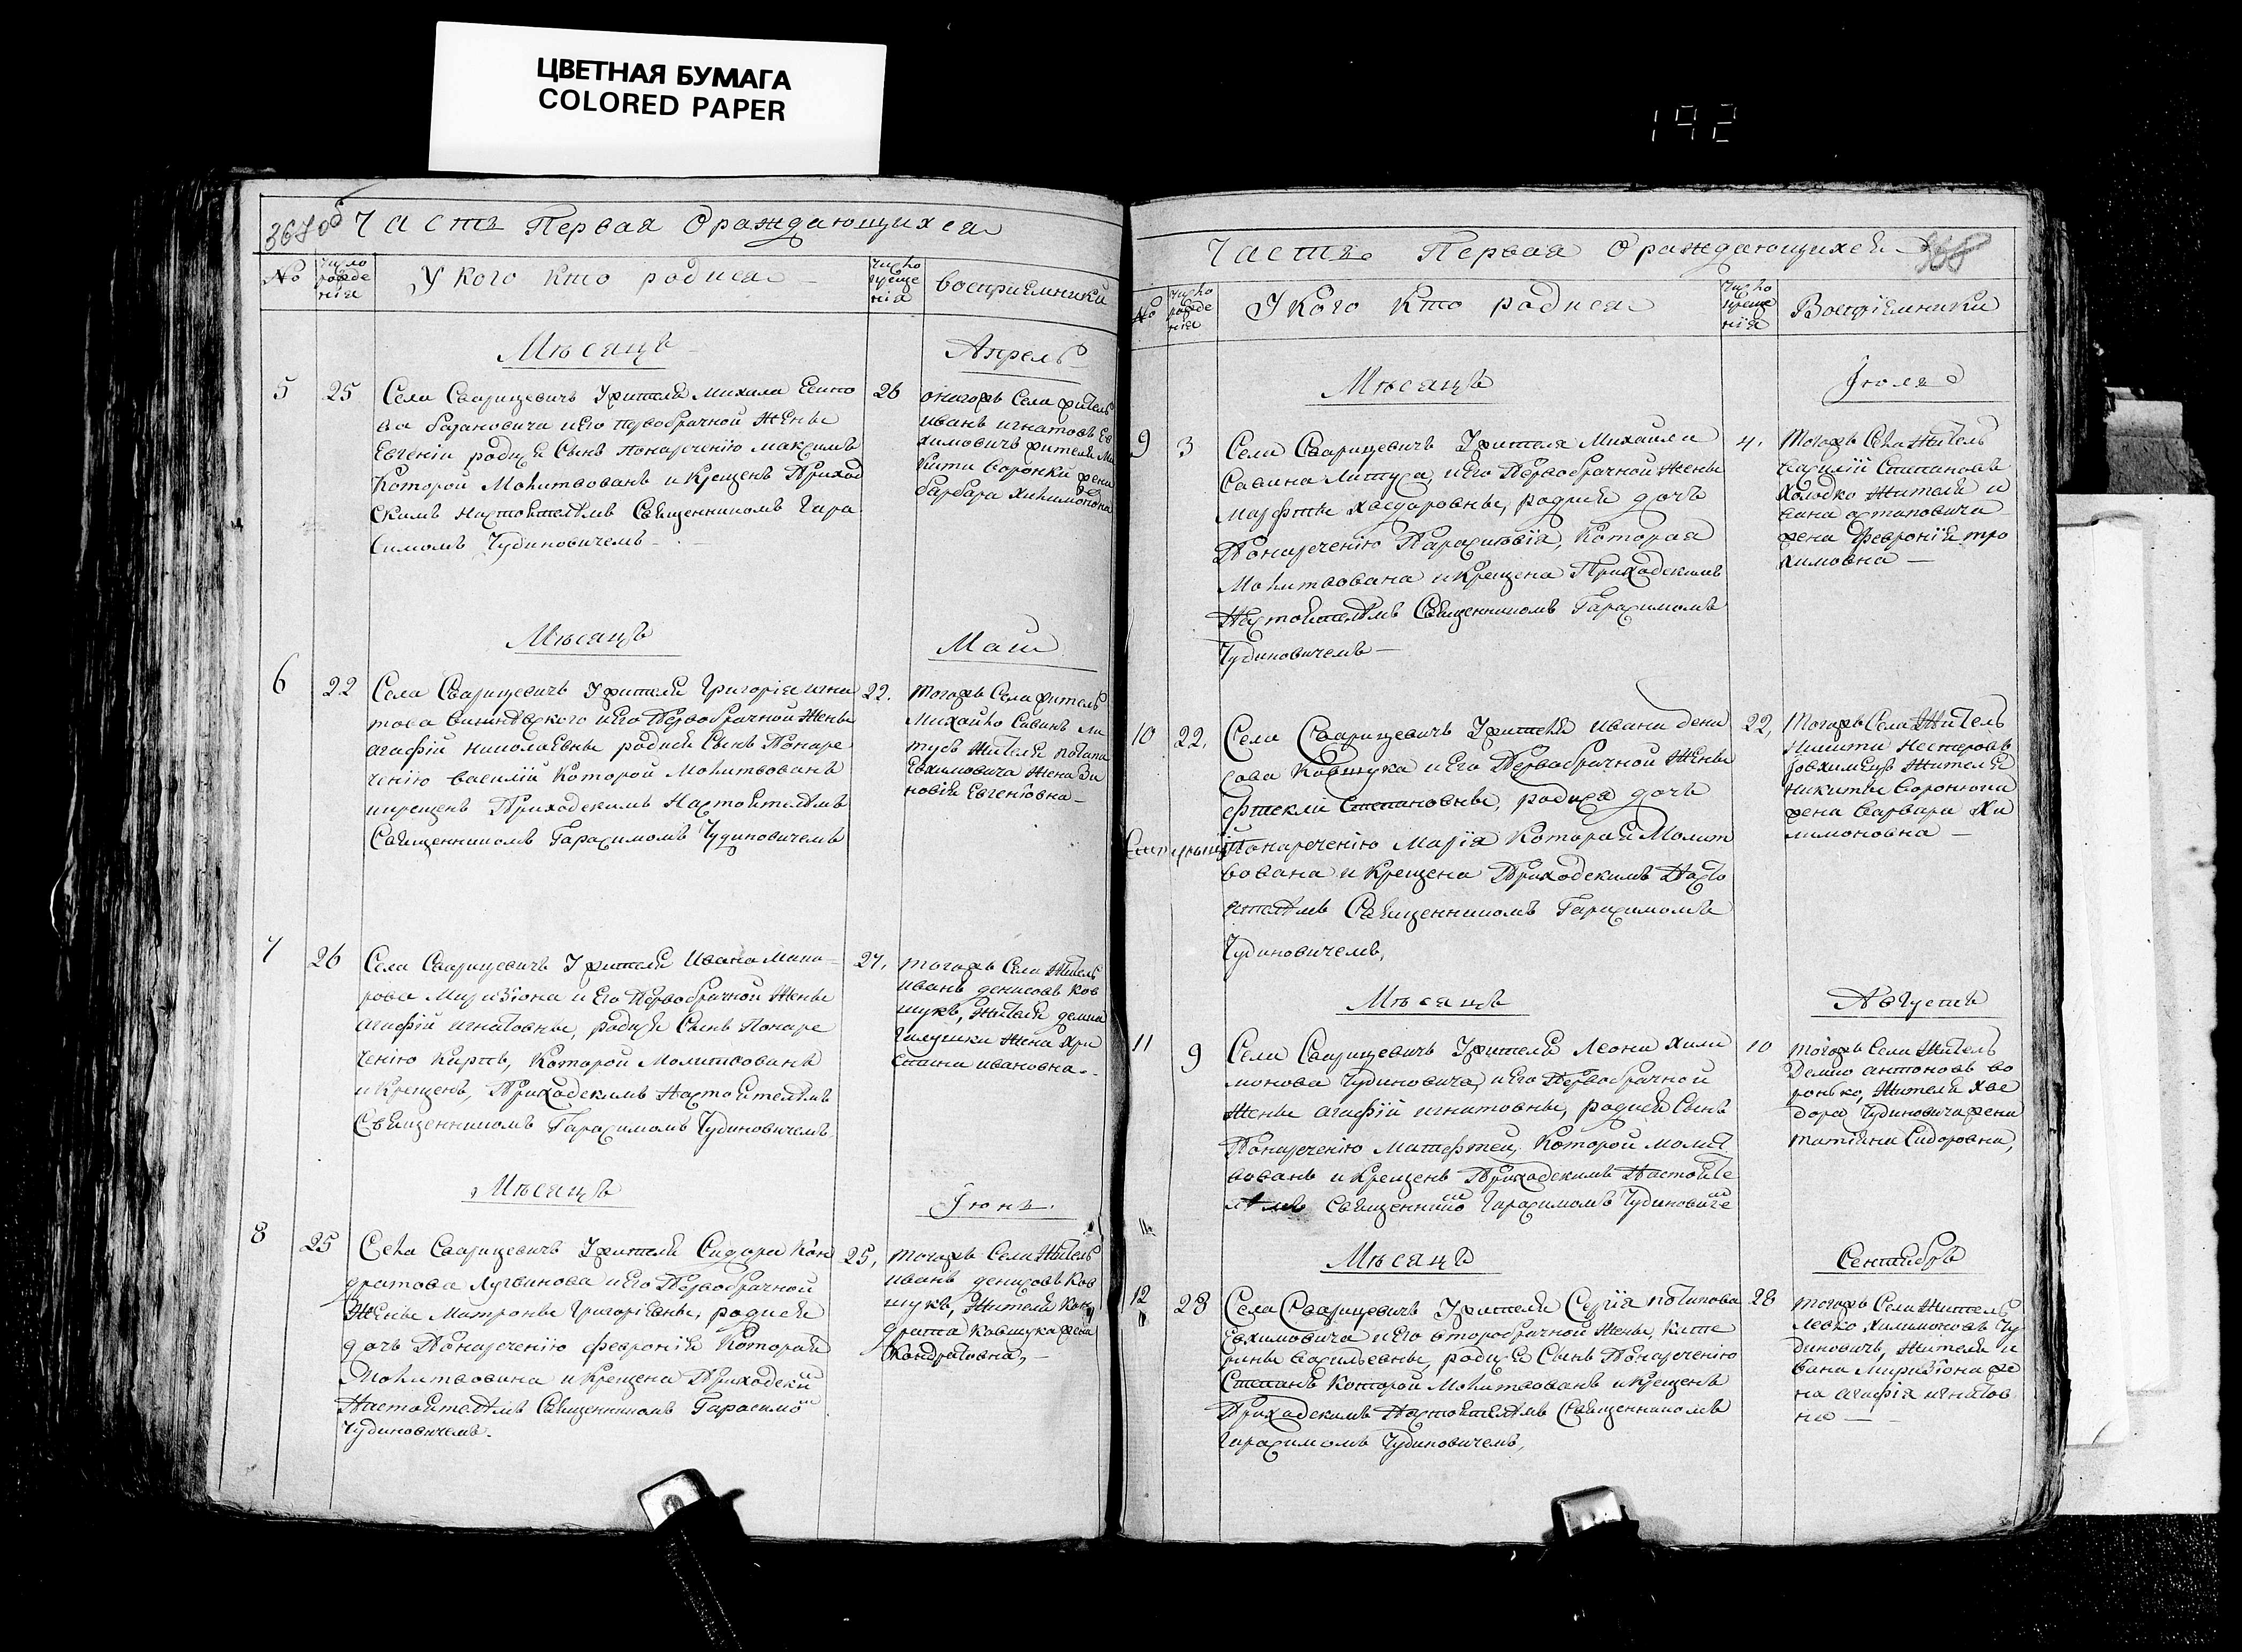 ЦВЕТНАЯ БУМАГА
COLORED PAPER
192
367 об Часть Первая Ораждающихся
№ Число рожде нія У кого кто родися Число креще нія восприемники
Мѣсяцъ Апрель
5 25 Села Сварицевичъ У жителя Михаила
и его первобрачной жены
Евгеніи родися Сынъ понареченію максимъ
Которой Молитвованъ и Крещенъ Приход
скимъ Настоятелемъ Священникомъ Гара
симомъ Чудиновичемъ
26 оногожъ Села житель
иванъ игнатовъ Ев
химовичъ жителя Ми
кити Воронки жена
Варвара Хилимоновна
Мѣсяцъ Маія
6 22 Села Сварицевичъ У жителя Григорія игна
това и его Первобрачной Жены
агафіи николаевны родися Сынъ Понаре
ченію василій Которой Молитвованъ
икрещенъ Приходскимъ Настоятелемъ
Священникомъ Гарасимомъ Чудиновичемъ
22. тогожъ Села житель
Михайло Савинъ ли
тусъ Жителя потапа
Евхимовича Жена Зи
новія Евгеніовна
7 26 Села Сварицевичъ У жителя Ивана Мака
рова Миривіона и Его Первобрачной Жены
агафіи игнатовны, родися Сынъ Понаре
ченію Карпъ, Которой Молитвованъ
и Крещенъ, Приходскимъ Настоятелемъ
Священникомъ Гарасимомъ Чудиновичемъ
27. тогожъ Села Житель
иванъ денисовъ Ков
шукъ, Жителя демка
Жена Хри
стина ивановна
Мѣсяцъ Іюнь
8 25 Села Сварицевичъ У жителя Сидора Кон
дратова Лугвинова и Его Первобрачной
Жены Матроны Григоріевны, родися
дочь Понареченію феvронія Которая
Молитвована и Крещена Приходски
Настоятелемъ Священникомъ Гарасимо
Чудиновичемъ.
25, тогожъ Села Житель
иванъ денисовъ Ков
шукъ, Жителя Кон
драта Ковшука жена
Кондратовна,
Часть Первая Ораждающихся 368
№ Число рожде нія У Кого Кто родися Число креще нія Воспріемники
Мѣсяцъ Іюля
9 3 Села Сварицевичъ У жителя Михайла
Савина Литуса, и Его Первобрачной Жены
Марфты Хведоровны, родися дочь
Понареченію Параскевія, Которая
Молитвована и Крещена Приходскимъ
Настоятелемъ Священникомъ Гарасимомъ
Чудиновичемъ
4. Тогожъ Села Житель
Василій Стипановъ
Холодко Жителя и
вана остаповича
жена Феvронія тро
химовна
10 22, Села Сварицевичъ У жителя ивана дени
сова Ковшука и Его Первобрачной Жены
фтекли Степановны, родися дочь
Понареченію Марія Которая Молит
вована и Крещена Приходскимъ Насто
ятелемъ Священникомъ Гарасимомъ
Чудиновичемъ,
22, Тогожъ Села Житель
Микита Нестеровъ
Жителя
никиты Воронюка
жена Варвара Хи
лимоновна
Мѣсяцъ Августъ
11 9 Села Сварицевичъ У жителя Леона Хили
монова Чудиновича, и Его Первобрачной
Жены агафіи игнатовны, родися Сынъ
Понареченію Матфтей, Которой молит
вованъ и Крещенъ Приходскимъ Настояте
лемъ Священнико Гарасимомъ Чудинович
10 тогожъ Села Житель
Демко антоновъ во
ронько, Жителя Хве
дора Чудиновича жена
татіяна Сидоровна,
Мѣсяцъ Сентябръ
12 28 Села Сварицевичъ У жителя Сергія потапова
Евхимовича и Его второбрачной Жены, Кате
рины васильевны, родися Сынъ Понареченію
Степанъ Которой Молитвованъ и Крещенъ
Приходскимъ Настоятелемъ Священникомъ
Гарасимомъ Чудиновичемъ,
28 тогожъ Села Житель
Левко Хилимоновъ Чу
диновичъ, Жителя и
вана Миривіона же
на агафія игнатов
на